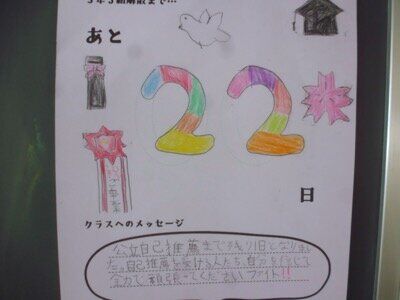 ３年３組解散まで…
あと
22
日
クラスへのメッセージ
公立自己推薦まで残り1日となりまし
た。自己推薦を受ける人たち、自分を信じて
全力で頑張ってください ファイト!!